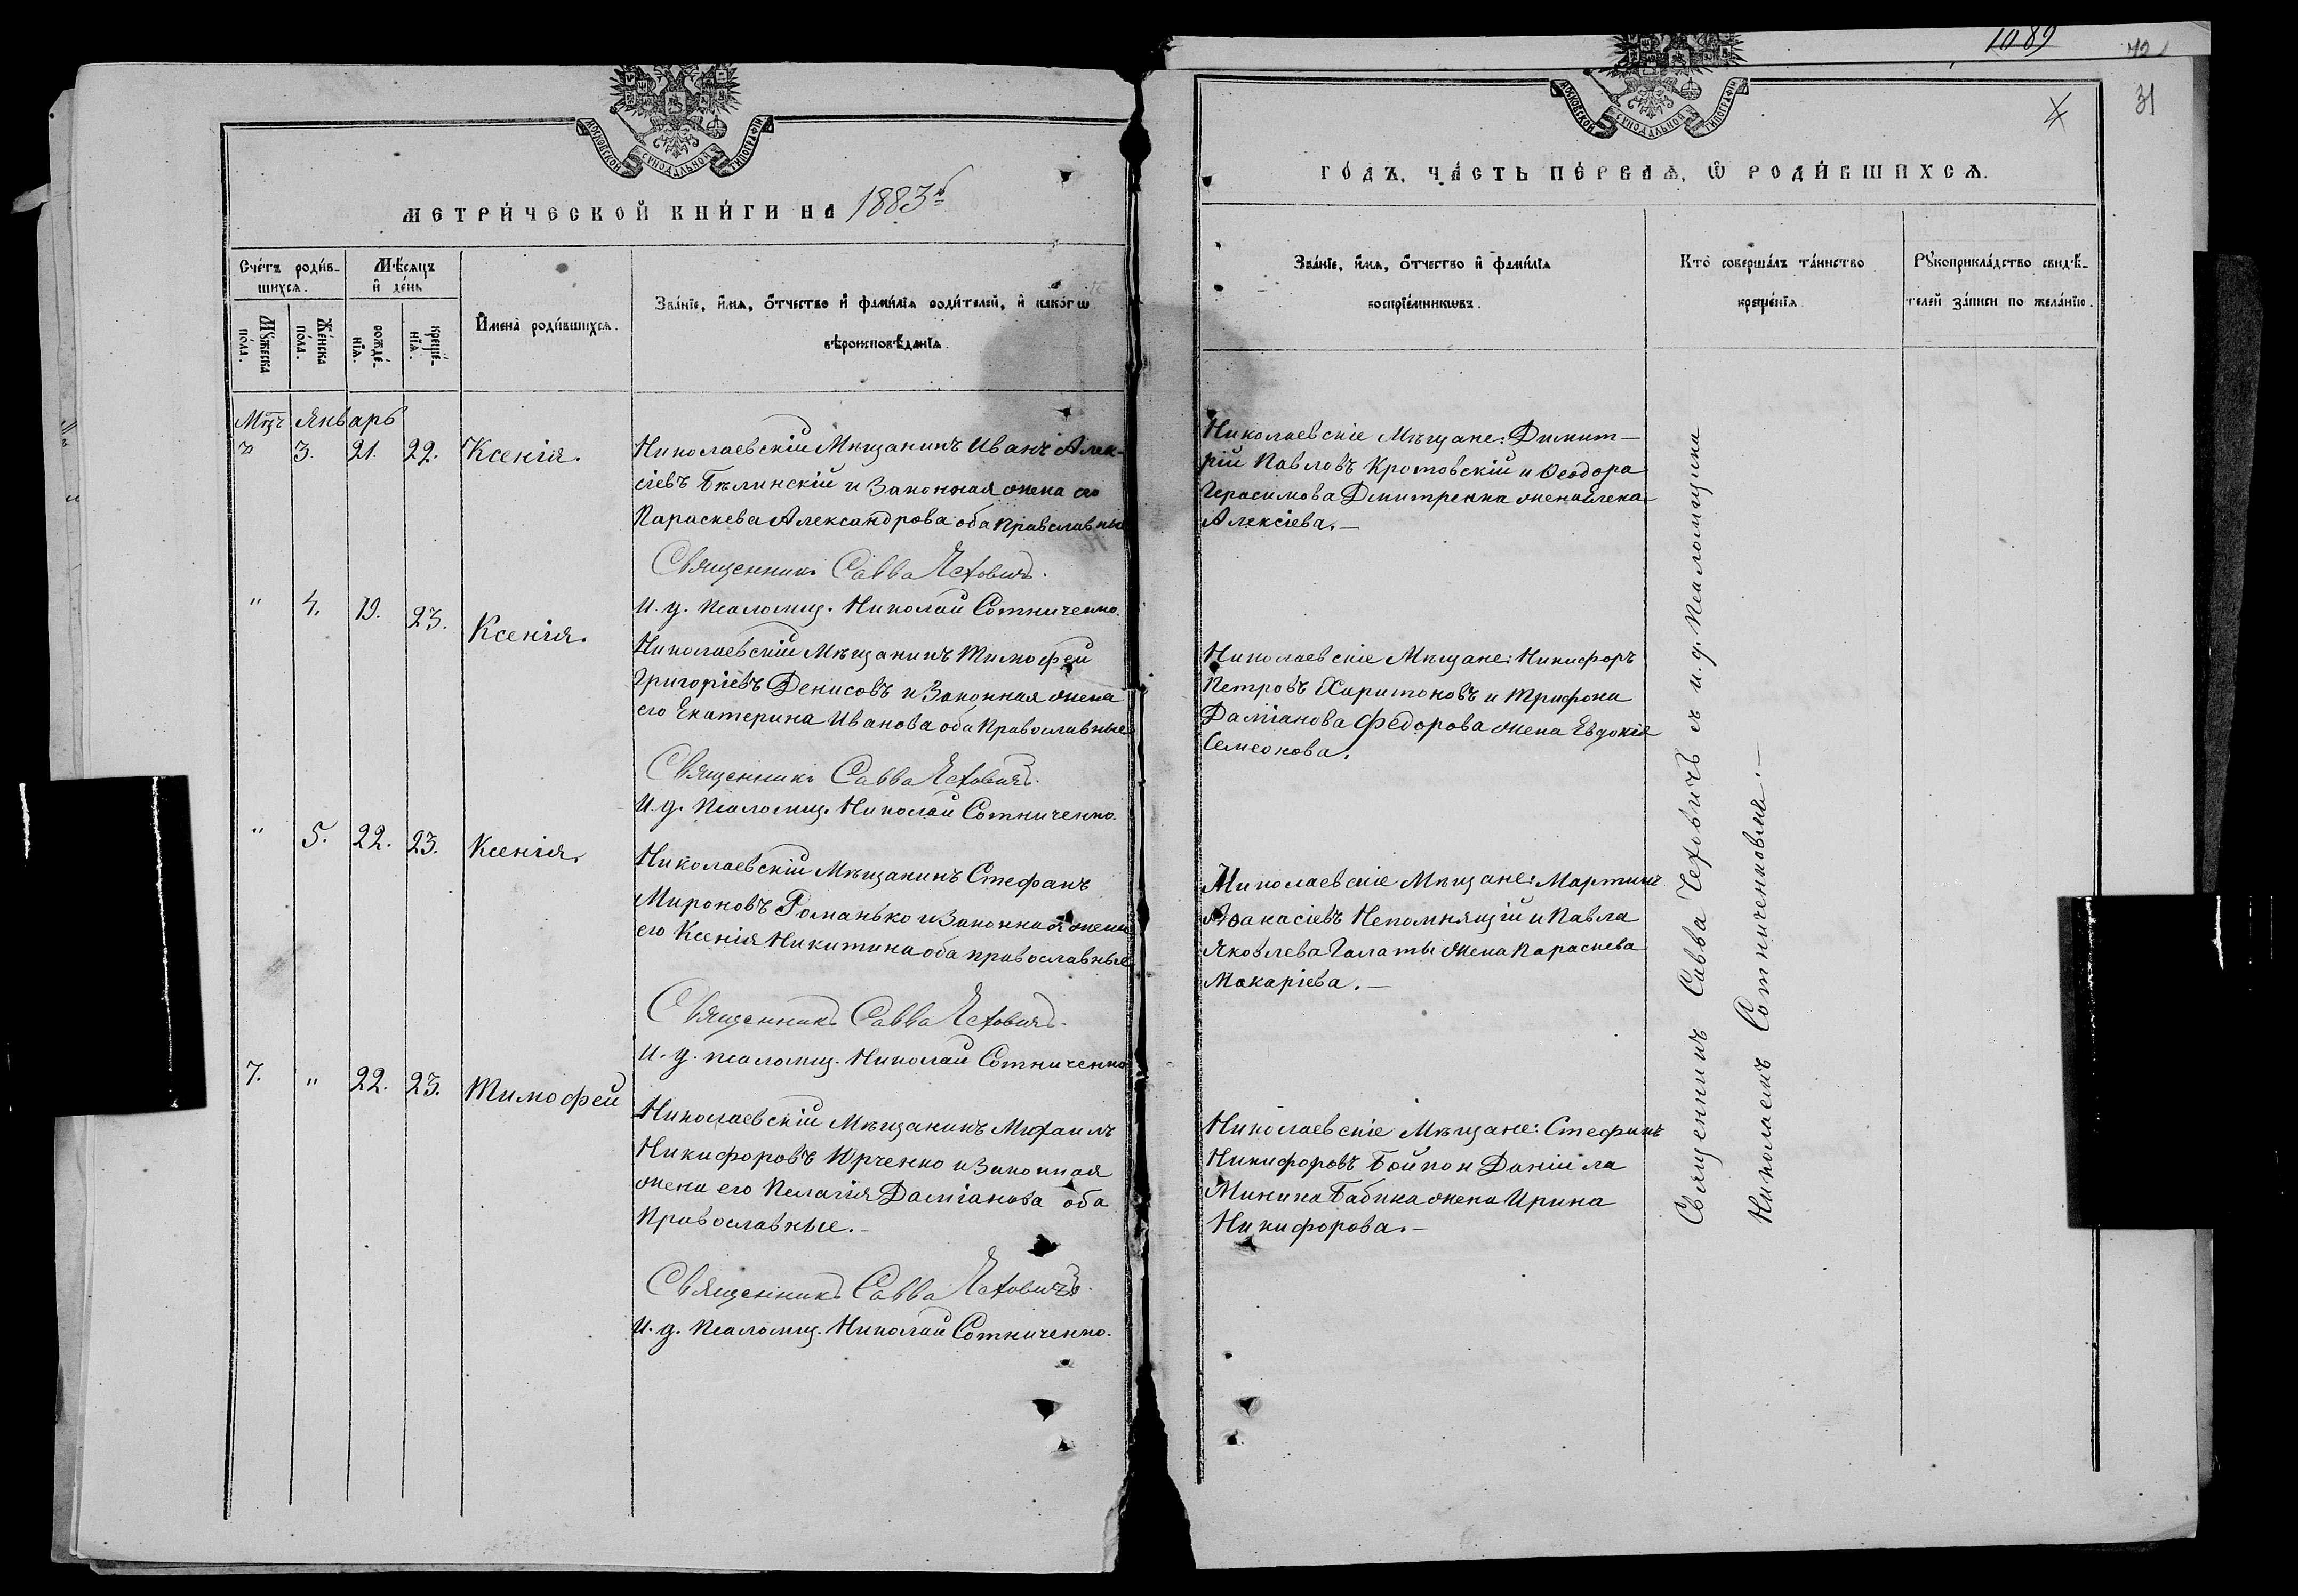 МОСКОВСКОЙ СѴНОДАЛЬНОЙ ТИПОГРАФІИ
МЕТРИ́ЧЕСКОЙ КНИ́ГИ НА 1883й
Сче́тъ роди́в-
шихсѧ.
Мѣ́сѧцъ
и҆ де́нь
Мꙋ́жеска
по́ла.
Же́нска
по́ла.
рожде́-
нїѧ.
креще́-
нїѧ.
И҆мена̀ роди́вшихсѧ.
Зва́нїе, и҆́мѧ, ѻ҆́тчество и҆ фами́лїѧ роди́телей, и҆ како́гѡ
вѣроисповѣ́данїѧ.
Мцъ Январь
" 3. 21. 22. Ксенія.
Николаевскій Мѣщанинъ Иванъ Алек-
сіевъ Бѣлинскій и Законная жена его
Параскева Александрова оба Православные
Священникъ Савва Чеховичъ.
И. д. Псаломщ. Николай Сотниченко.
" 4. 19. 23. Ксенія.
Николаевскій Мѣщанинъ Тимофей
Григоріевъ Денисовъ и Законная жена
его Екатерина Иванова оба Православные
Священникъ Савва Чеховичъ.
И. д. Псаломщ. Николай Сотниченко.
" 5. 22. 23. Ксенія.
Николаевскій Мѣщанинъ Стефанъ
Мироновъ Романько и Законная жена
его Ксенія Никитина оба православные
Священникъ Савва Чеховичъ.
И. д. псаломщ. Николай Сотниченко
7. " 22. 23. Тимофей
Николаевскій Мѣщанинъ Михаилъ
Никифоровъ Юрченко и Законная
жена его Пелагія Даміанова оба
Православные.-
Священникъ Савва Чеховичъ.
И. д. Псаломщ. Николай Сотниченко.
1089
31
МОСКОВСКОЙ СѴНОДАЛЬНОЙ ТИПОГРАФІИ
ГО́ДЪ, ЧА́СТЬ ПЕ́РВАѦ, Ѡ҆ РОДИ́ВШИХСѦ.
Зва́нїе, и҆́мѧ, ѻ҆́тчество и҆ фами́лїѧ
воспрїе́мникѡвъ.
Кто̀ соверша́лъ та́инство
креще́нїѧ
Рꙋкоприкла́дство свидѣ́-
телей за́писи по жела́нїю.
Николаевскіе Мѣщане: Димит-
рій Павловъ Кротовскій и Ѳеодора
Герасимова Дмитренка жена Елена
Алексіева.-
Николаевскіе Мѣщане: Никифоръ
Петровъ Харитоновъ и Трифона
Даміанова Федорова жена Евдокія
Семеонова.
Николаевскіе Мѣщане: Мартинъ
Аѳанасіевъ Непомнящій и Павла
Яковлева Галаты жена Параскева
Макаріева.-
Николаевскіе Мѣщане: Стефанъ
Никифоровъ Бойко и Даніила
Минина Бабика жена Ирина
Никифорова.-
Священникъ Савва Чеховичъ съ и. д. Псаломщика
Николаемъ Сотниченковымъ.-